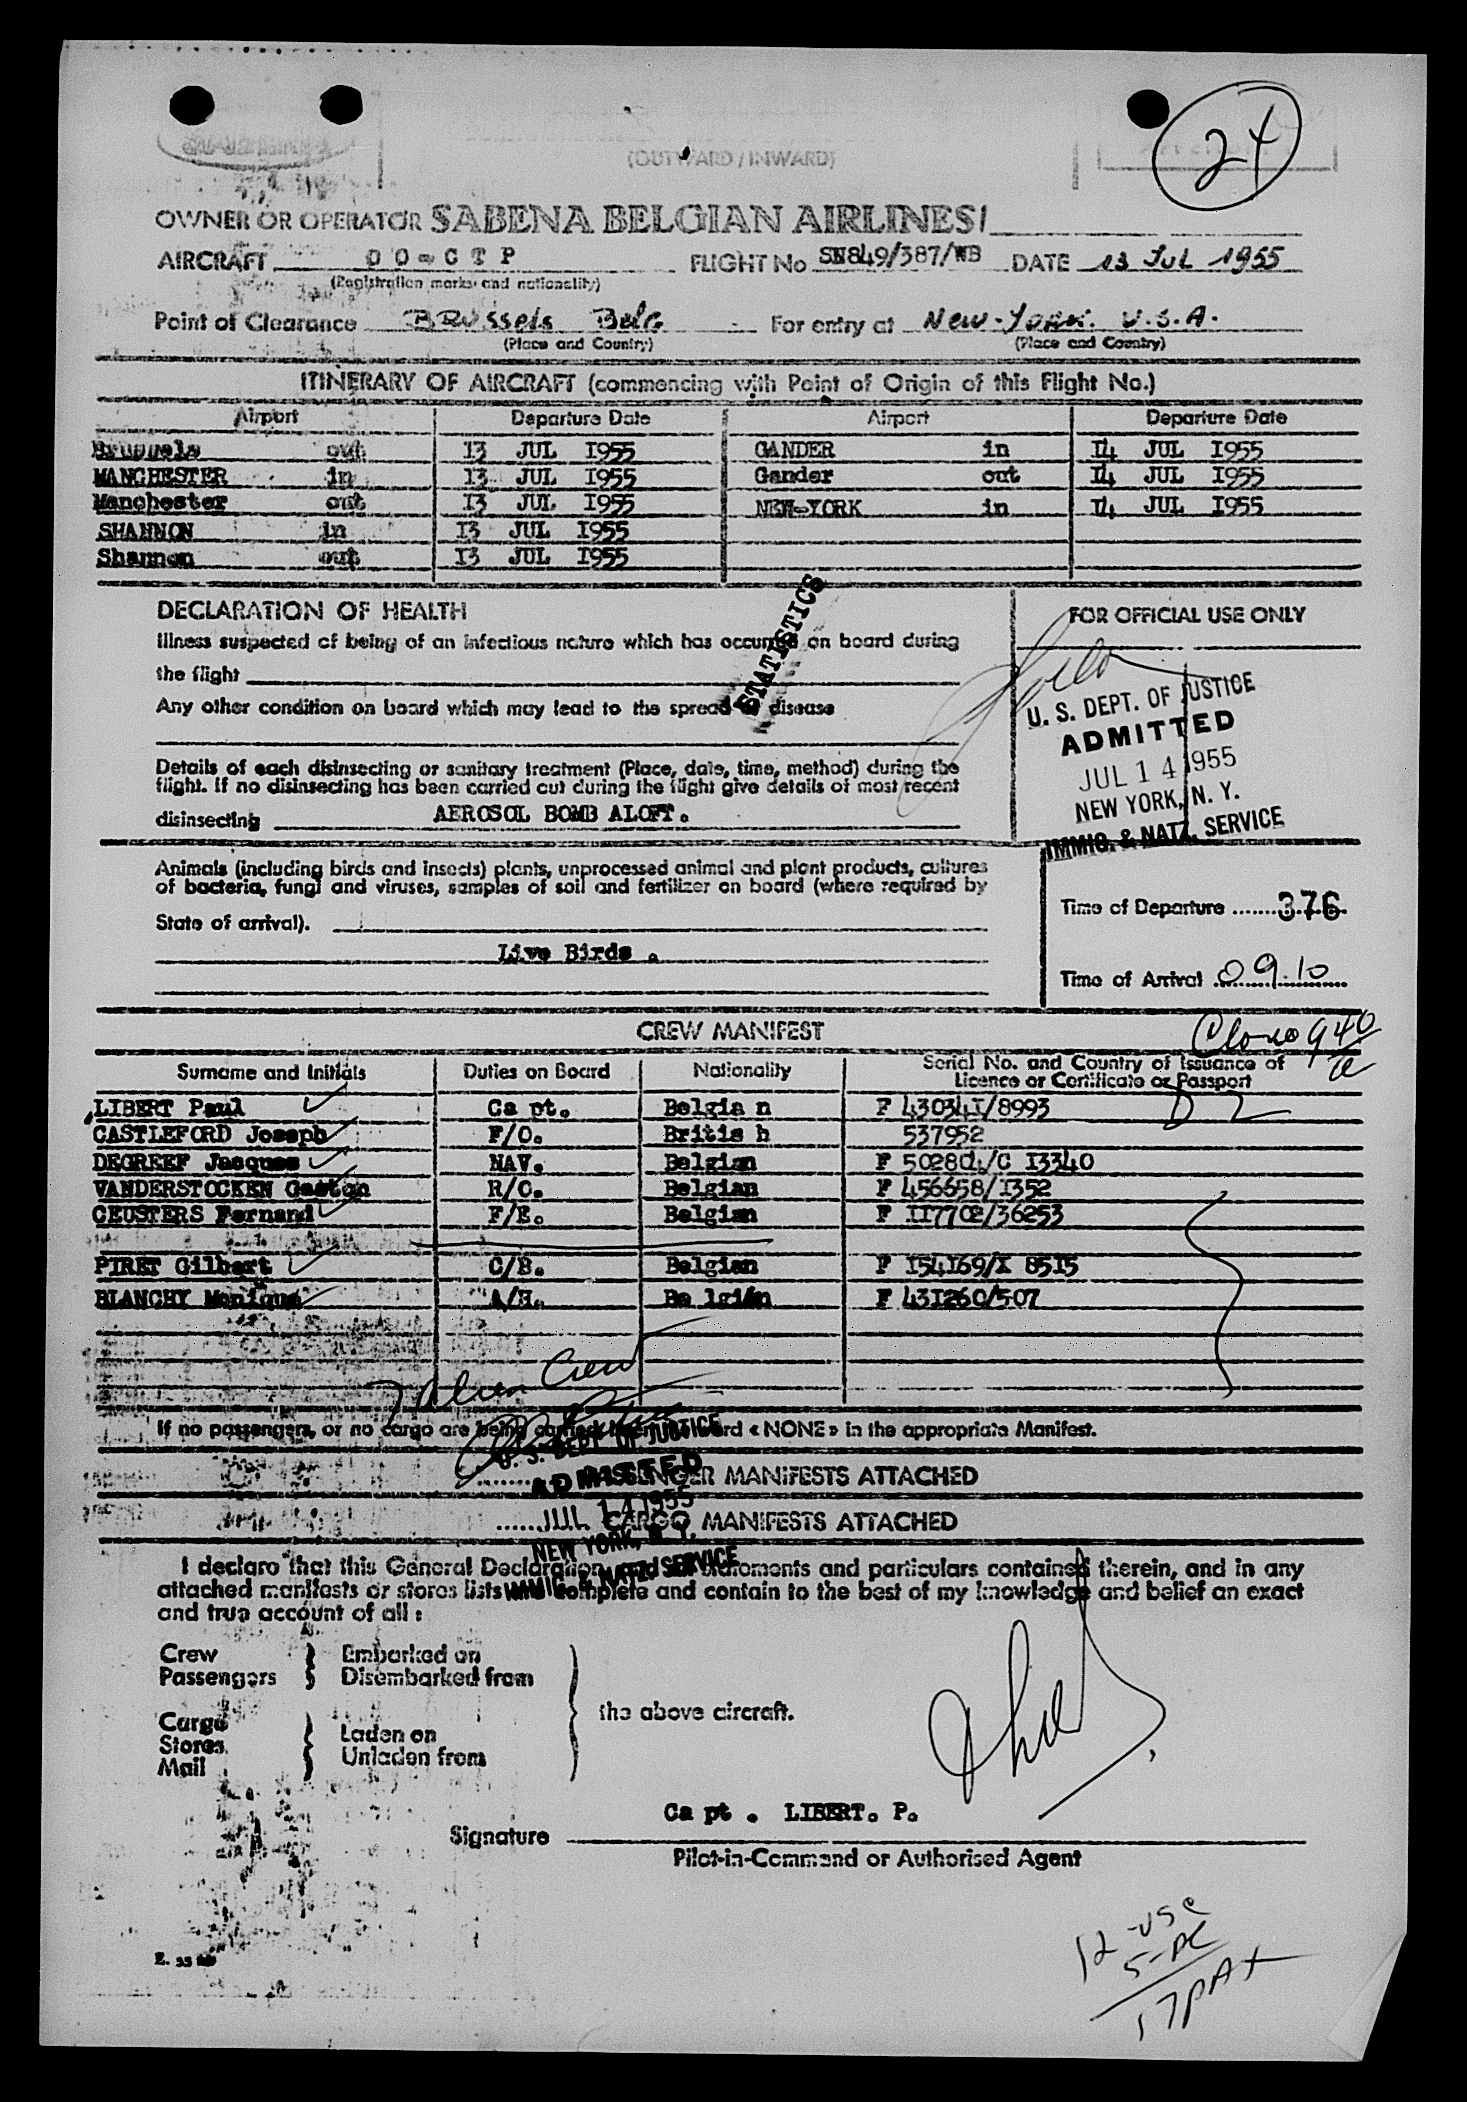 24
(OUTWARD / INWARD)
OWNER OR OPERATOR SABENA BELGIAN AIRLINES
AIRCRAFT OO-CTP FLIGHT No SN849/387/WB DATE 13 JUL 1955
(Registration marks and nationality)
Point of Clearance BRUSSels Belg For entry at New-York. U.S.A.
(Place and Country) (Place and Country)
ITINERARY OF AIRCRAFT (commencing with Point of Origin of this Flight No.)
Airport Departure Date Airport Departure Date
Brussels out 13 JUL 1955 GANDER in 14 JUL 1955
MANCHESTER in 13 JUL 1955 Gander out 14 JUL 1955
Manchester out 13 JUL 1955 NEW-YORK in 14 JUL 1955
SHANNON in 13 JUL 1955
Shannon out 13 JUL 1955
STATISTICS
DECLARATION OF HEALTH FOR OFFICIAL USE ONLY
Illness suspected of being of an infectious nature which has occurred on board during
the flight
Any other condition on board which may lead to the spread of disease
U. S. DEPT. OF JUSTICE
ADMITTED
JUL 14 1955
NEW YORK, N. Y.
IMMIG. & NATZ. SERVICE
Details of each disinsecting or sanitary treatment (Place, date, time, method) during the
flight. If no disinsecting has been carried out during the flight give details of most recent
disinsecting AEROSOL BOMB ALOFT.
Animals (including birds and insects) plants, unprocessed animal and plant products, cultures
of bacteria, fungi and viruses, samples of soil and fertilizer on board (where required by
State of arrival).
Live Birds .
Time of Departure ....... 376
Time of Arrival 09.10
CREW MANIFEST
Close 940
Surname and Initials Duties on Board Nationality Serial No. and Country of Issuance of
Licence or Certificate or Passport
LIBERT Paul Ca pt. Belgia n F 43034I/8993 D 2
CASTLEFORD Joseph F/O. Britis h 537952
DEGREEF Jacques NAV. Belgian F 502804/C I3340
VANDERSTOCKEN Gaston R/O. Belgian F 456658/I352
CEUSTERS Fernand F/E. Belgian F II7702/36253
PIRET Gilbert C/B. Belgian F I54I69/X 85I5
BLANCHY Monique A/H. Be lgian F 43I260/507
7 alien Crew
If no passengers, or no cargo are being carried insert the word « NONE » in the appropriate Manifest.
U. S. DEPT. OF JUSTICE
ADMITTED
JUL 14 1955
NEW YORK, N. Y.
IMMIG. & NATZ. SERVICE
PASSENGER MANIFESTS ATTACHED
CARGO MANIFESTS ATTACHED
I declare that this General Declaration, and statements and particulars contained therein, and in any
attached manifests or stores lists are complete and contain to the best of my knowledge and belief an exact
and true account of all :
Crew Embarked on
Passengers Disembarked from
the above aircraft.
Cargo
Stores Laden on
Mail Unladen from
Ca pt . LIBERT. P.
Signature
Pilot-in-Command or Authorised Agent
E. 33
12 - USC
5 - AC
17 PAX